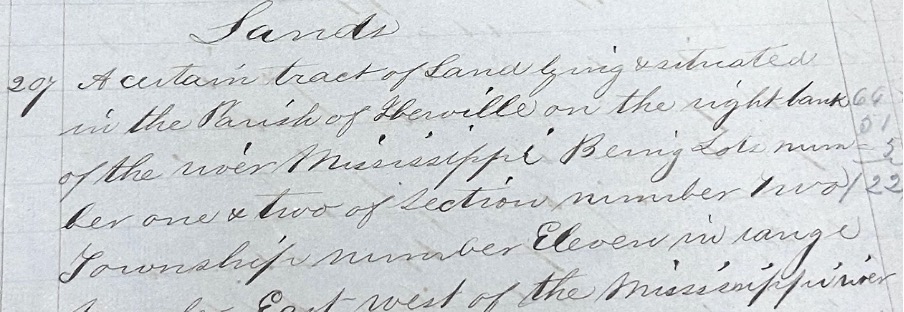 Lands
207 A certain tract of Land lying & situated
in the Parish of Iberville on the right bank 66
of the river Mississippi Being Lots num- 51
ber one & two of Section number Two 5
Township number Eleven in range 122
East west of the Mississippi river